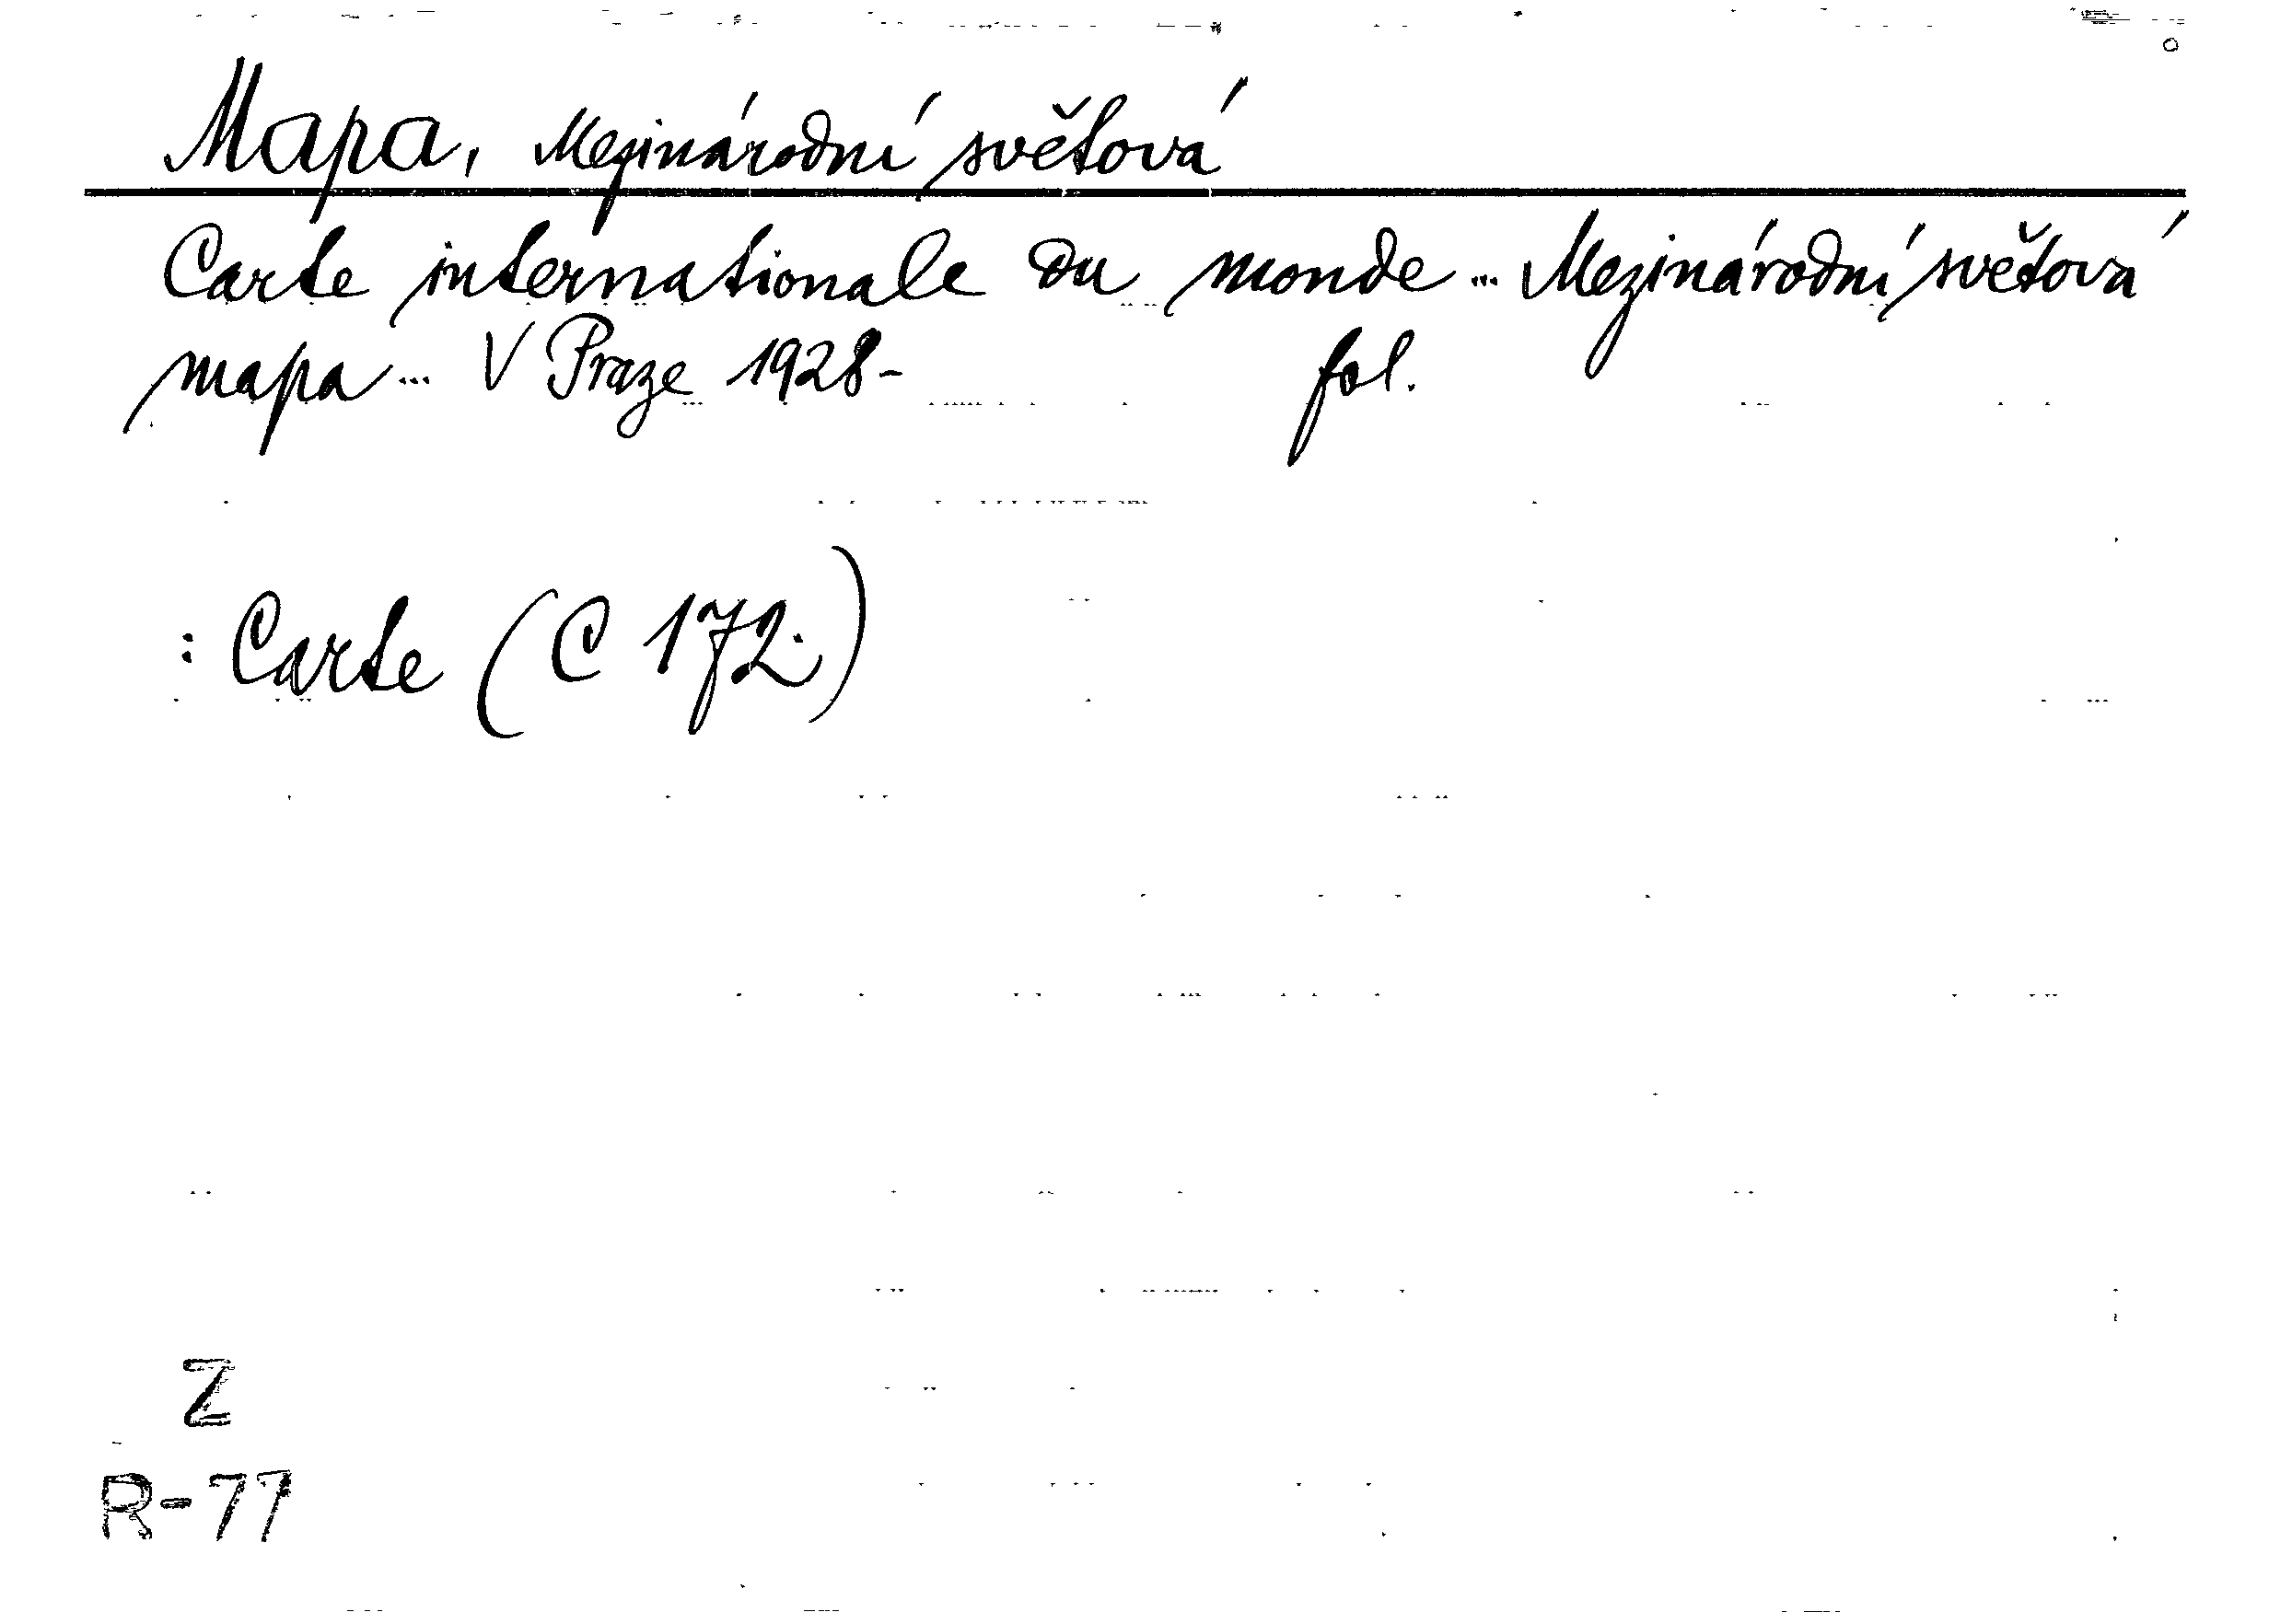 Mapa, Mezinárodní světová
Carte internationale du monde... Mezinárodní světová
mapa... V Praze 1928- fol.
: Carte (C 172.)
Z
R-77